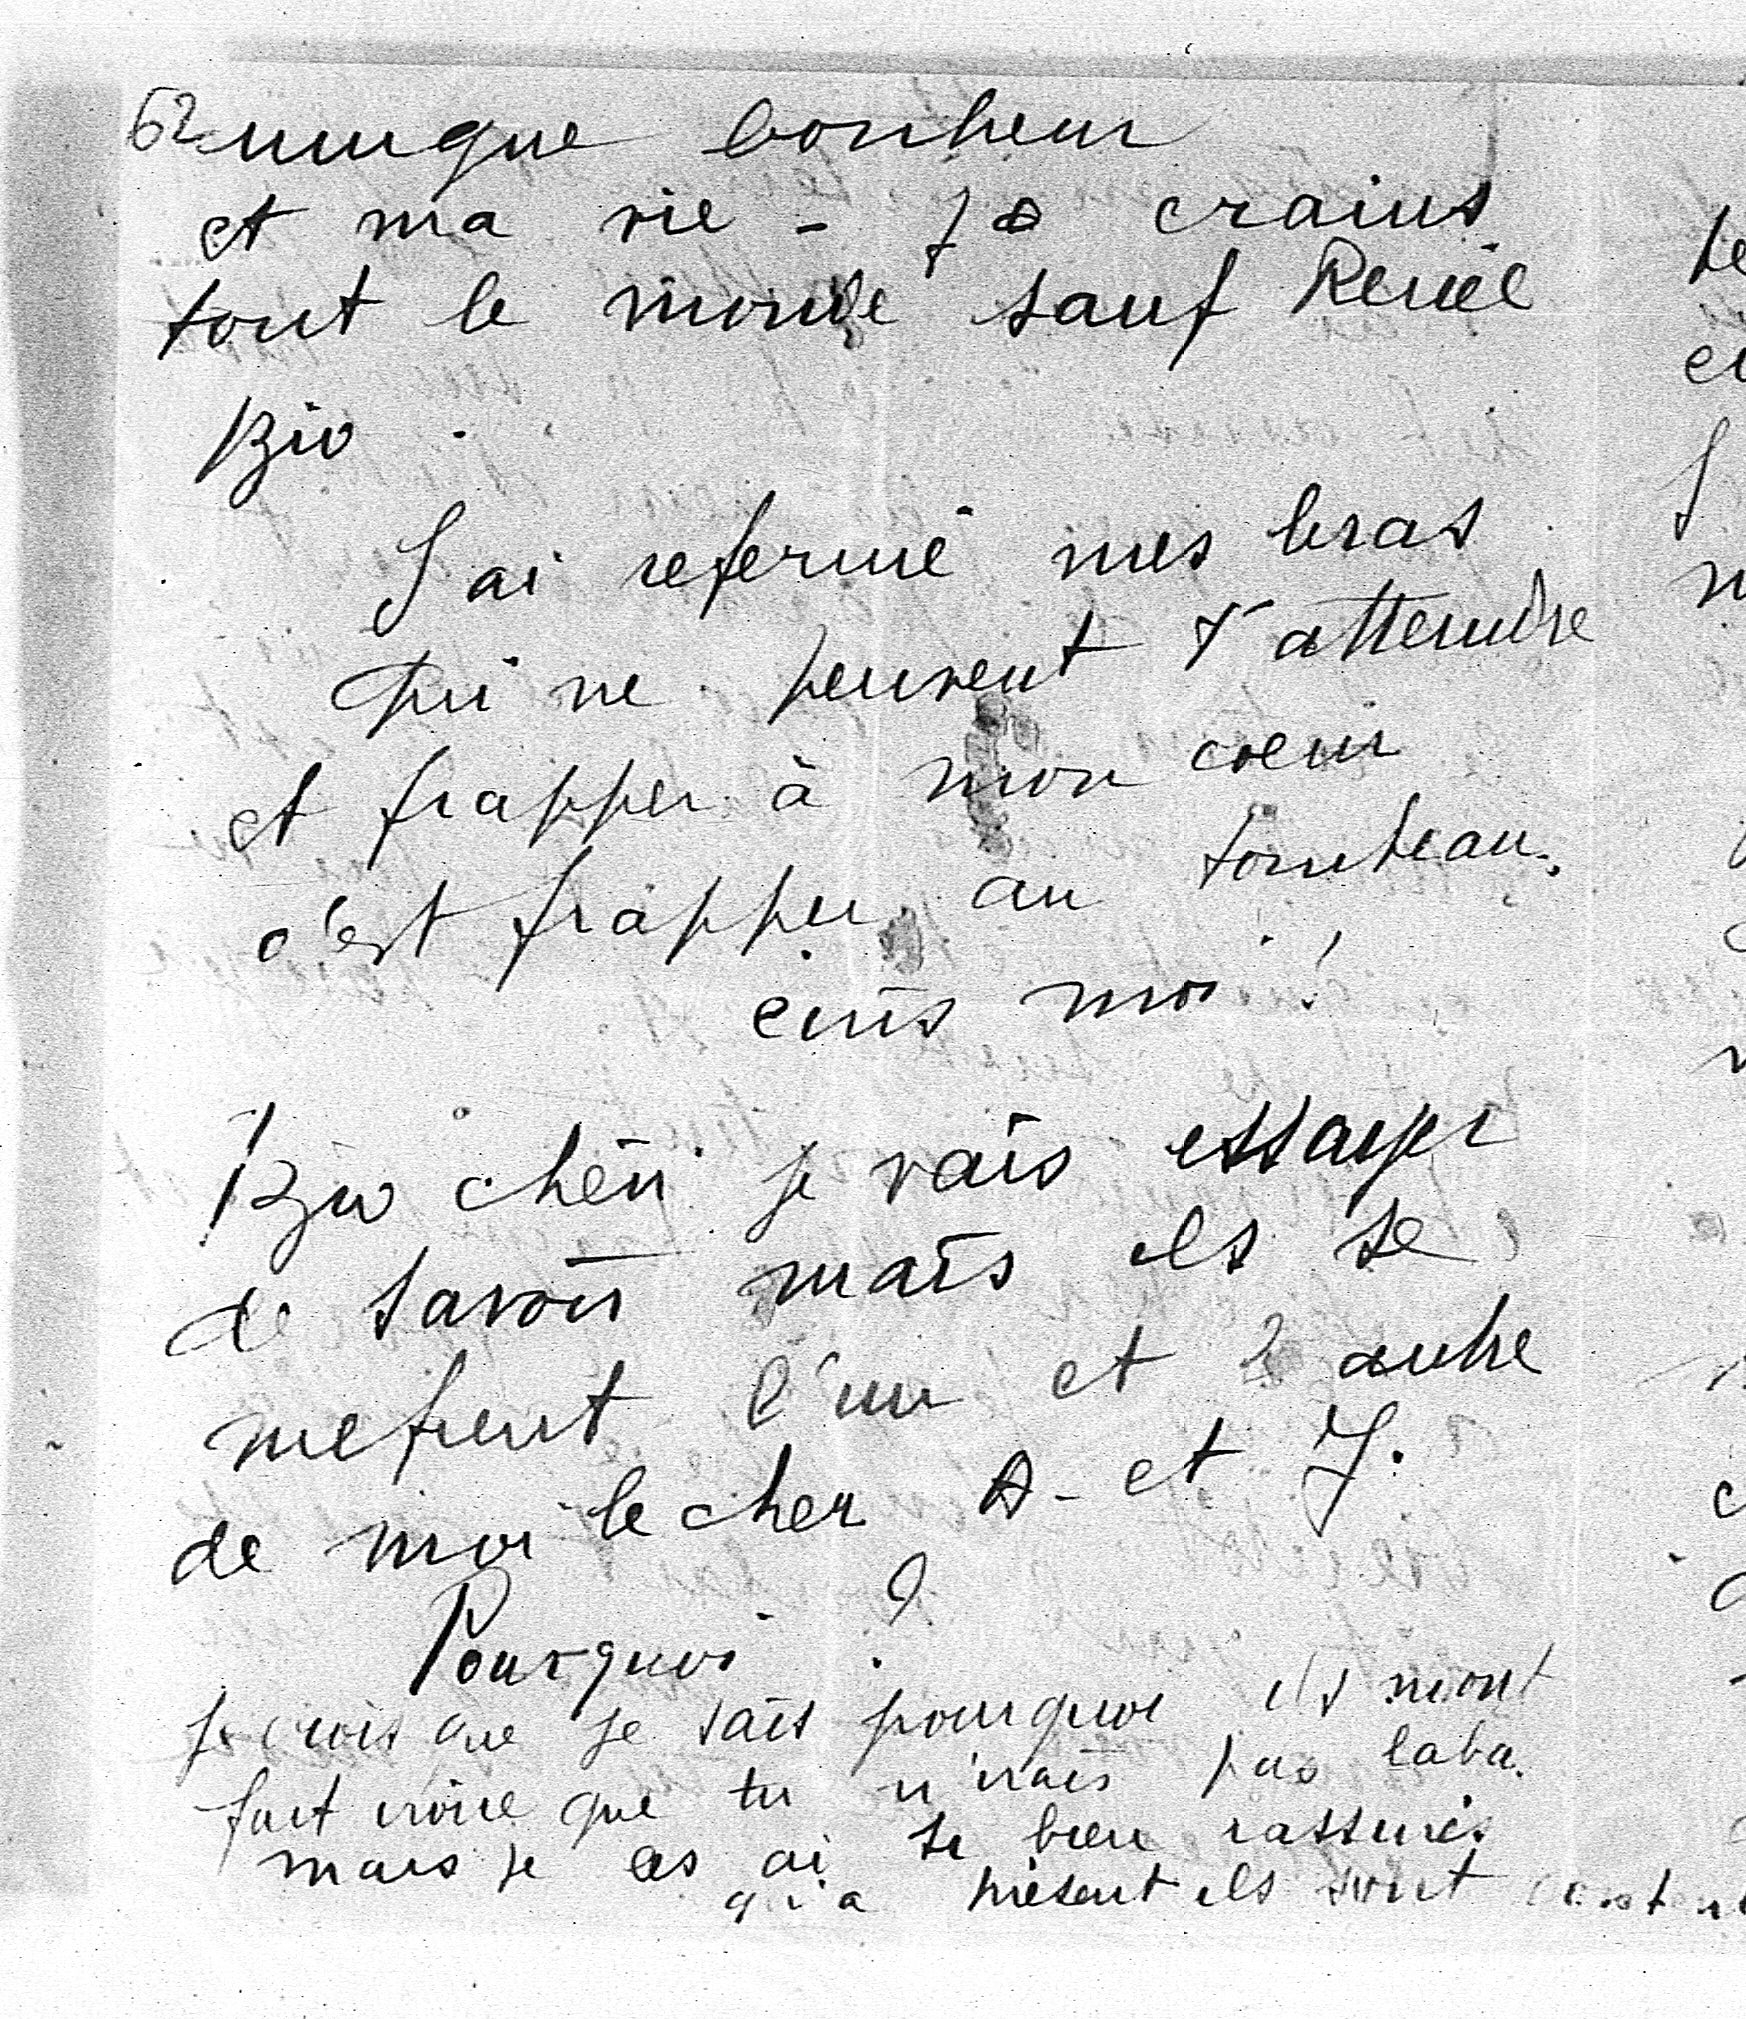 62 unique bonheur
et ma vie - Je crains
tout le monde sauf
J'ai refermé mes bras
qui ne peuvent t'attendre
et frapper à mon coeur
c'est frapper au tombeau.
moi !
chéri je vais essayer
de savoir mais ils se
mefient l'un et l'autre
de moi le cher A - et J.
Pourquoi ?
Je crois que je sais pourquoi ils mont
fait croire que tu n'irais pas laba.
mais je les ai si bien rassurés
qu'a présent ils sont